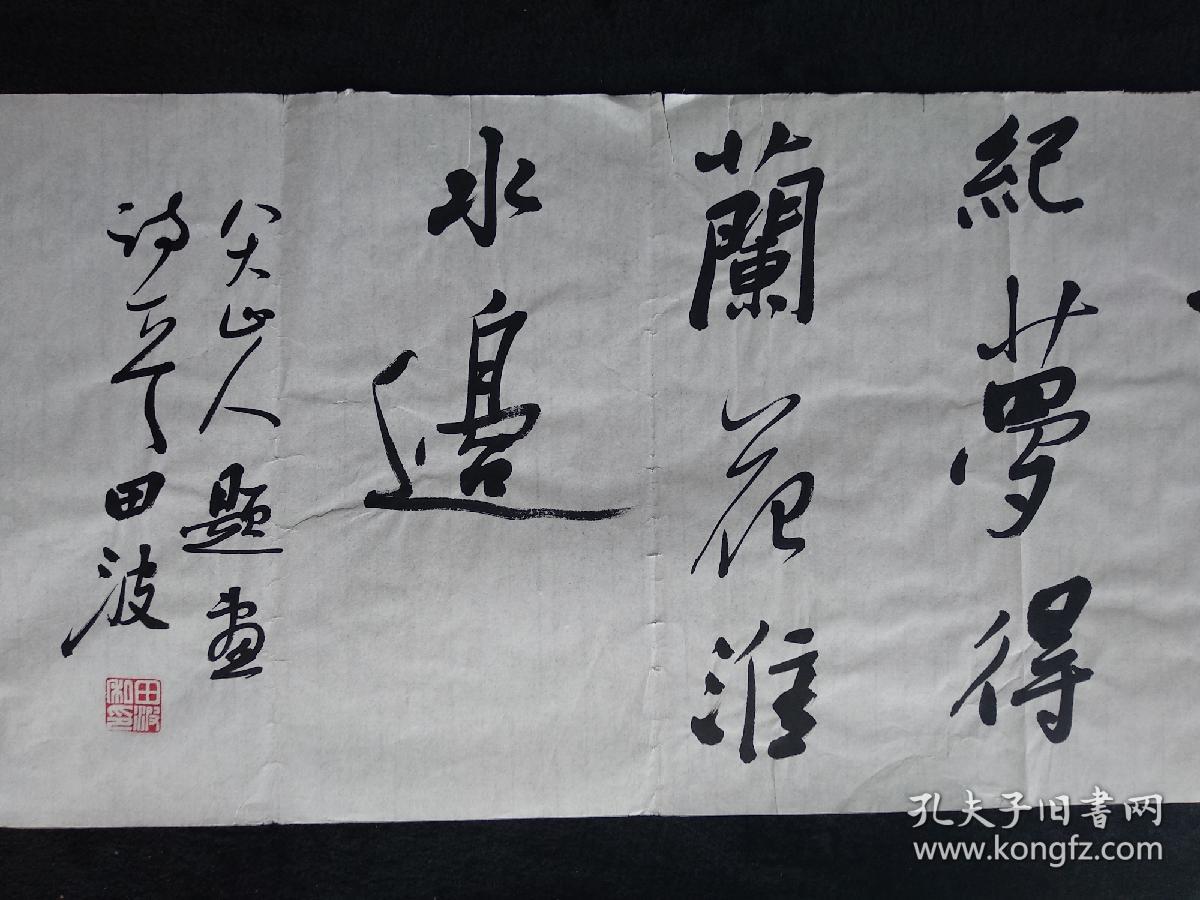 紀夢得
蘭花淮
水邊
八大山人題畫
诗一首田波
田波私印
孔夫子旧書网
www.kongfz.com